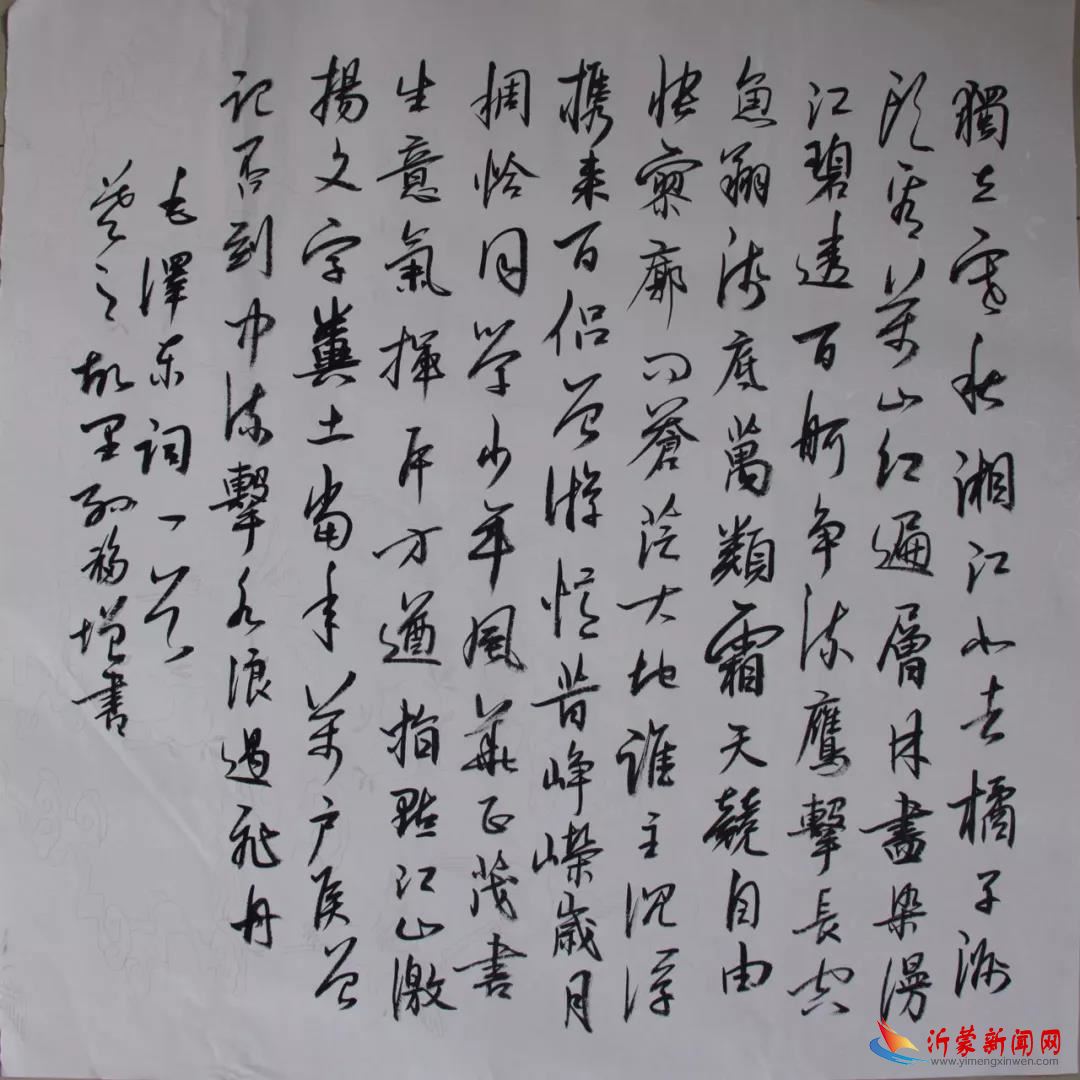 獨立寒秋湘江北去橘子洲
頭看萬山紅遍層林盡染漫
江碧透百舸争流鷹擊長空
魚翔淺底萬類霜天競自由
悵寥廓问蒼茫大地誰主沉浮
携来百侣曾游憶昔峥嶸歲月
稠恰同學少年風華正茂書
生意氣揮斥方遒指點江山激
揚文字糞土當年萬户侯曾
記否到中流擊水浪遏飛舟
毛澤东詞一首
羲之故里孙福增書
沂蒙新闻网
www.yimengxinwen.com